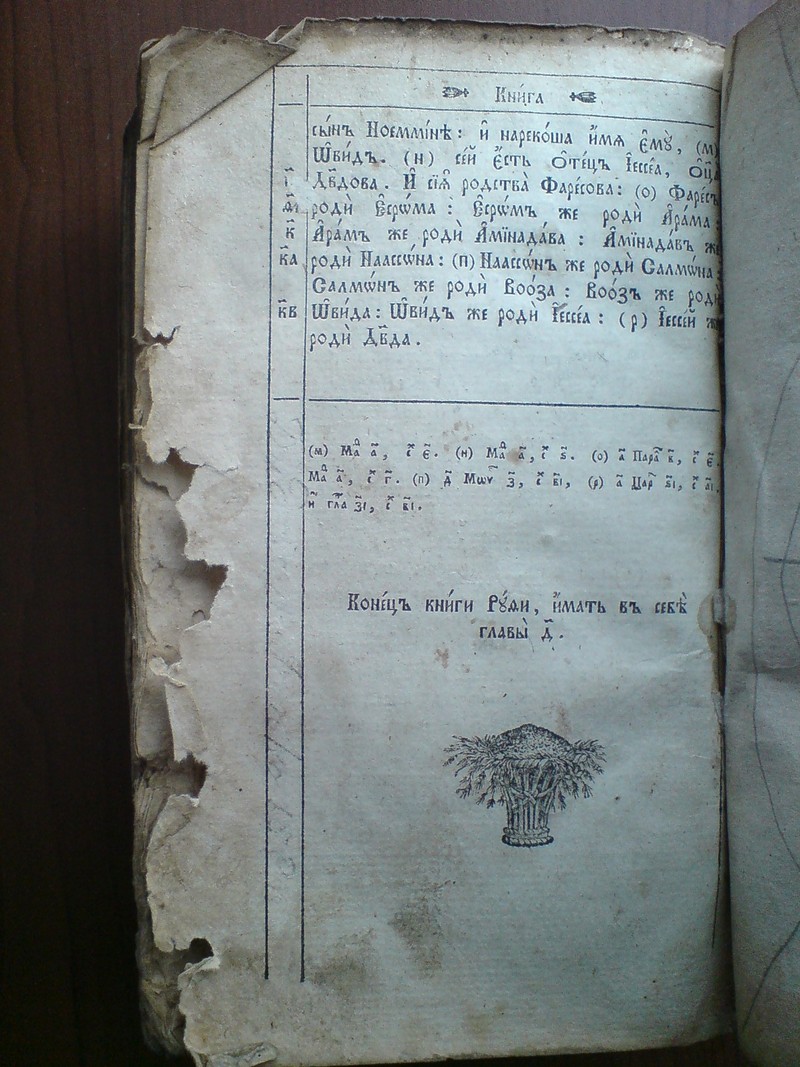 Кни́га
сы́нъ Ноеммі́нѣ: и҆ нареко́ша и҆́мѧ є҆мꙋ̀, (м)
Ѡ҆ви́дъ. (н) се́й є҆́сть ѻ҆те́цъ І҆ессе́а, ѻ҆ц҃а̀
і҃ Дв҃дова. И҆ сїѧ̑ родства̀ Фаре́сова: (о) Фаре́съ
ѳ҃і родѝ Є҆срѡ́ма: Є҆срѡ́мъ же родѝ А҆ра́ма:
к҃ А҆ра́мъ же родѝ А҆мїнада́ва: А҆мїнада́въ же
к҃а родѝ Наассѡ́на: (п) Наассѡ́нъ же родѝ Салмѡ́на:
Салмѡ́нъ же родѝ Воо́за: Воо́зъ же родѝ
к҃в Ѡ҆ви́да: Ѡ҆ви́дъ же родѝ І҆ессе́а: (р) І҆ессе́й же
родѝ Дв҃да.
(м) Маⷴ҇ а҃, с҃ є҃. (н) Маⷴ҇ а҃, с҃ ѕ҃. (о) а҃ Пара к҃, с҃ є҃.
Маⷴ҇ а҃, с҃ г҃. (п) д҃ Мѡѵ з҃, с҃ в҃і, (р) а҃ Цар ѕ҃і, с҃ а҃і.
и҆ гла з҃і, с҃ в҃і.
Коне́цъ кни́ги Рꙋ́ѳи, и҆́мать въ себѣ̀
главы̀ д҃.